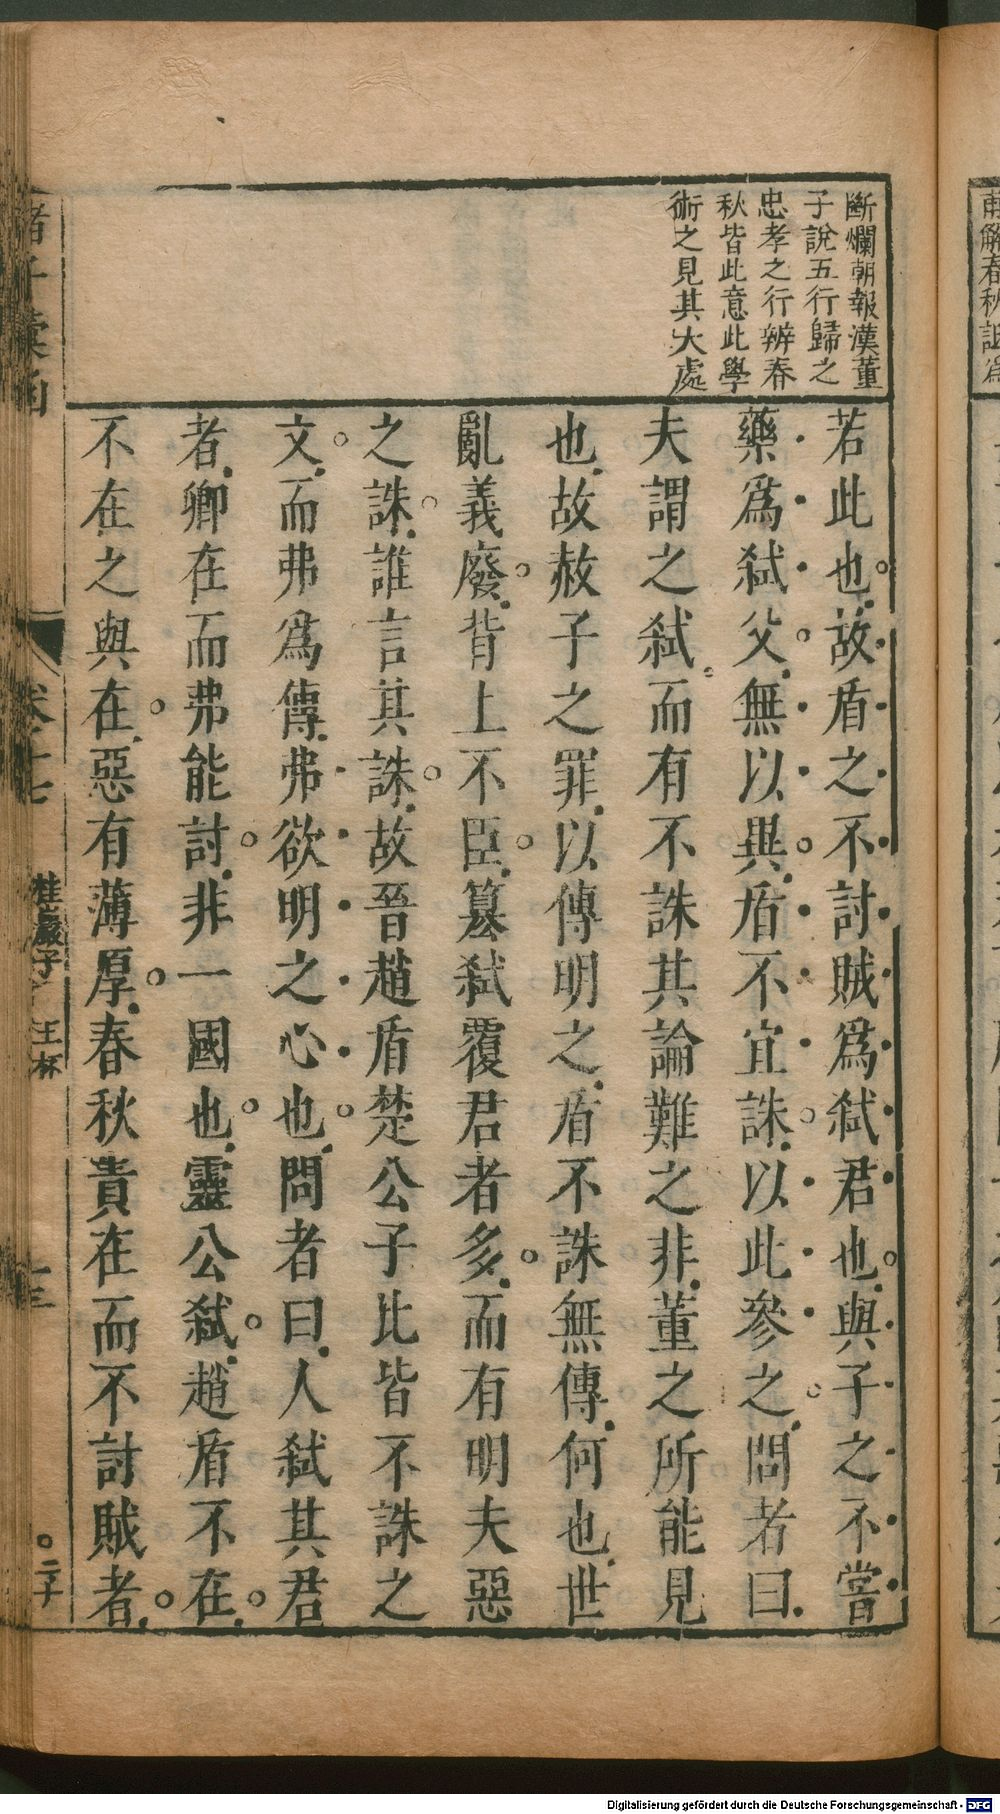 斷爛朝報漢董
子說五行歸之
忠孝之行辨春
秋皆此意此學
術之見其大處
若此也故盾之不討賊爲弑君也與子之不嘗
藥爲弑父無以異盾不宜誅以此參之問者曰
夫謂之弑而有不誅其論難之非董之所能見
也故赦子之罪以傳明之盾不誅無傳何也世
亂義廢背上不臣篡弑覆君者多而有明夫惡
之誅誰言其誅故晉趙盾楚公子比皆不誅之
文而弗爲傳弗欲明之心也問者曰人弑其君
者卿在而弗能討非一國也靈公弑趙盾不在
不在之與在惡有薄厚春秋貴在而不討賊者
諸子彙函 卷十七 桂巖子 王杯
Digitalisierung gefördert durch die Deutsche Forschungsgemeinschaft - DFG